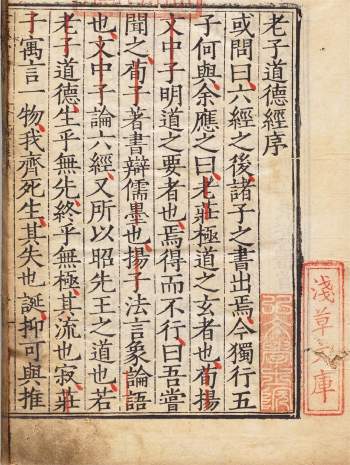 老子道德經序
或問曰六經之後諸子之書出焉今獨行五
子何與余應之曰老莊極道之玄者也荀揚
文中子明道之要者也焉得而不行曰吾嘗
聞之荀子著書辯儒墨也揚子法言象論語
也文中子論六經又所以昭先王之道也若
老子道德生乎無先終乎無極其流也寂莊
子寓言一物我齊死生其失也誕抑可與推
淺草文庫